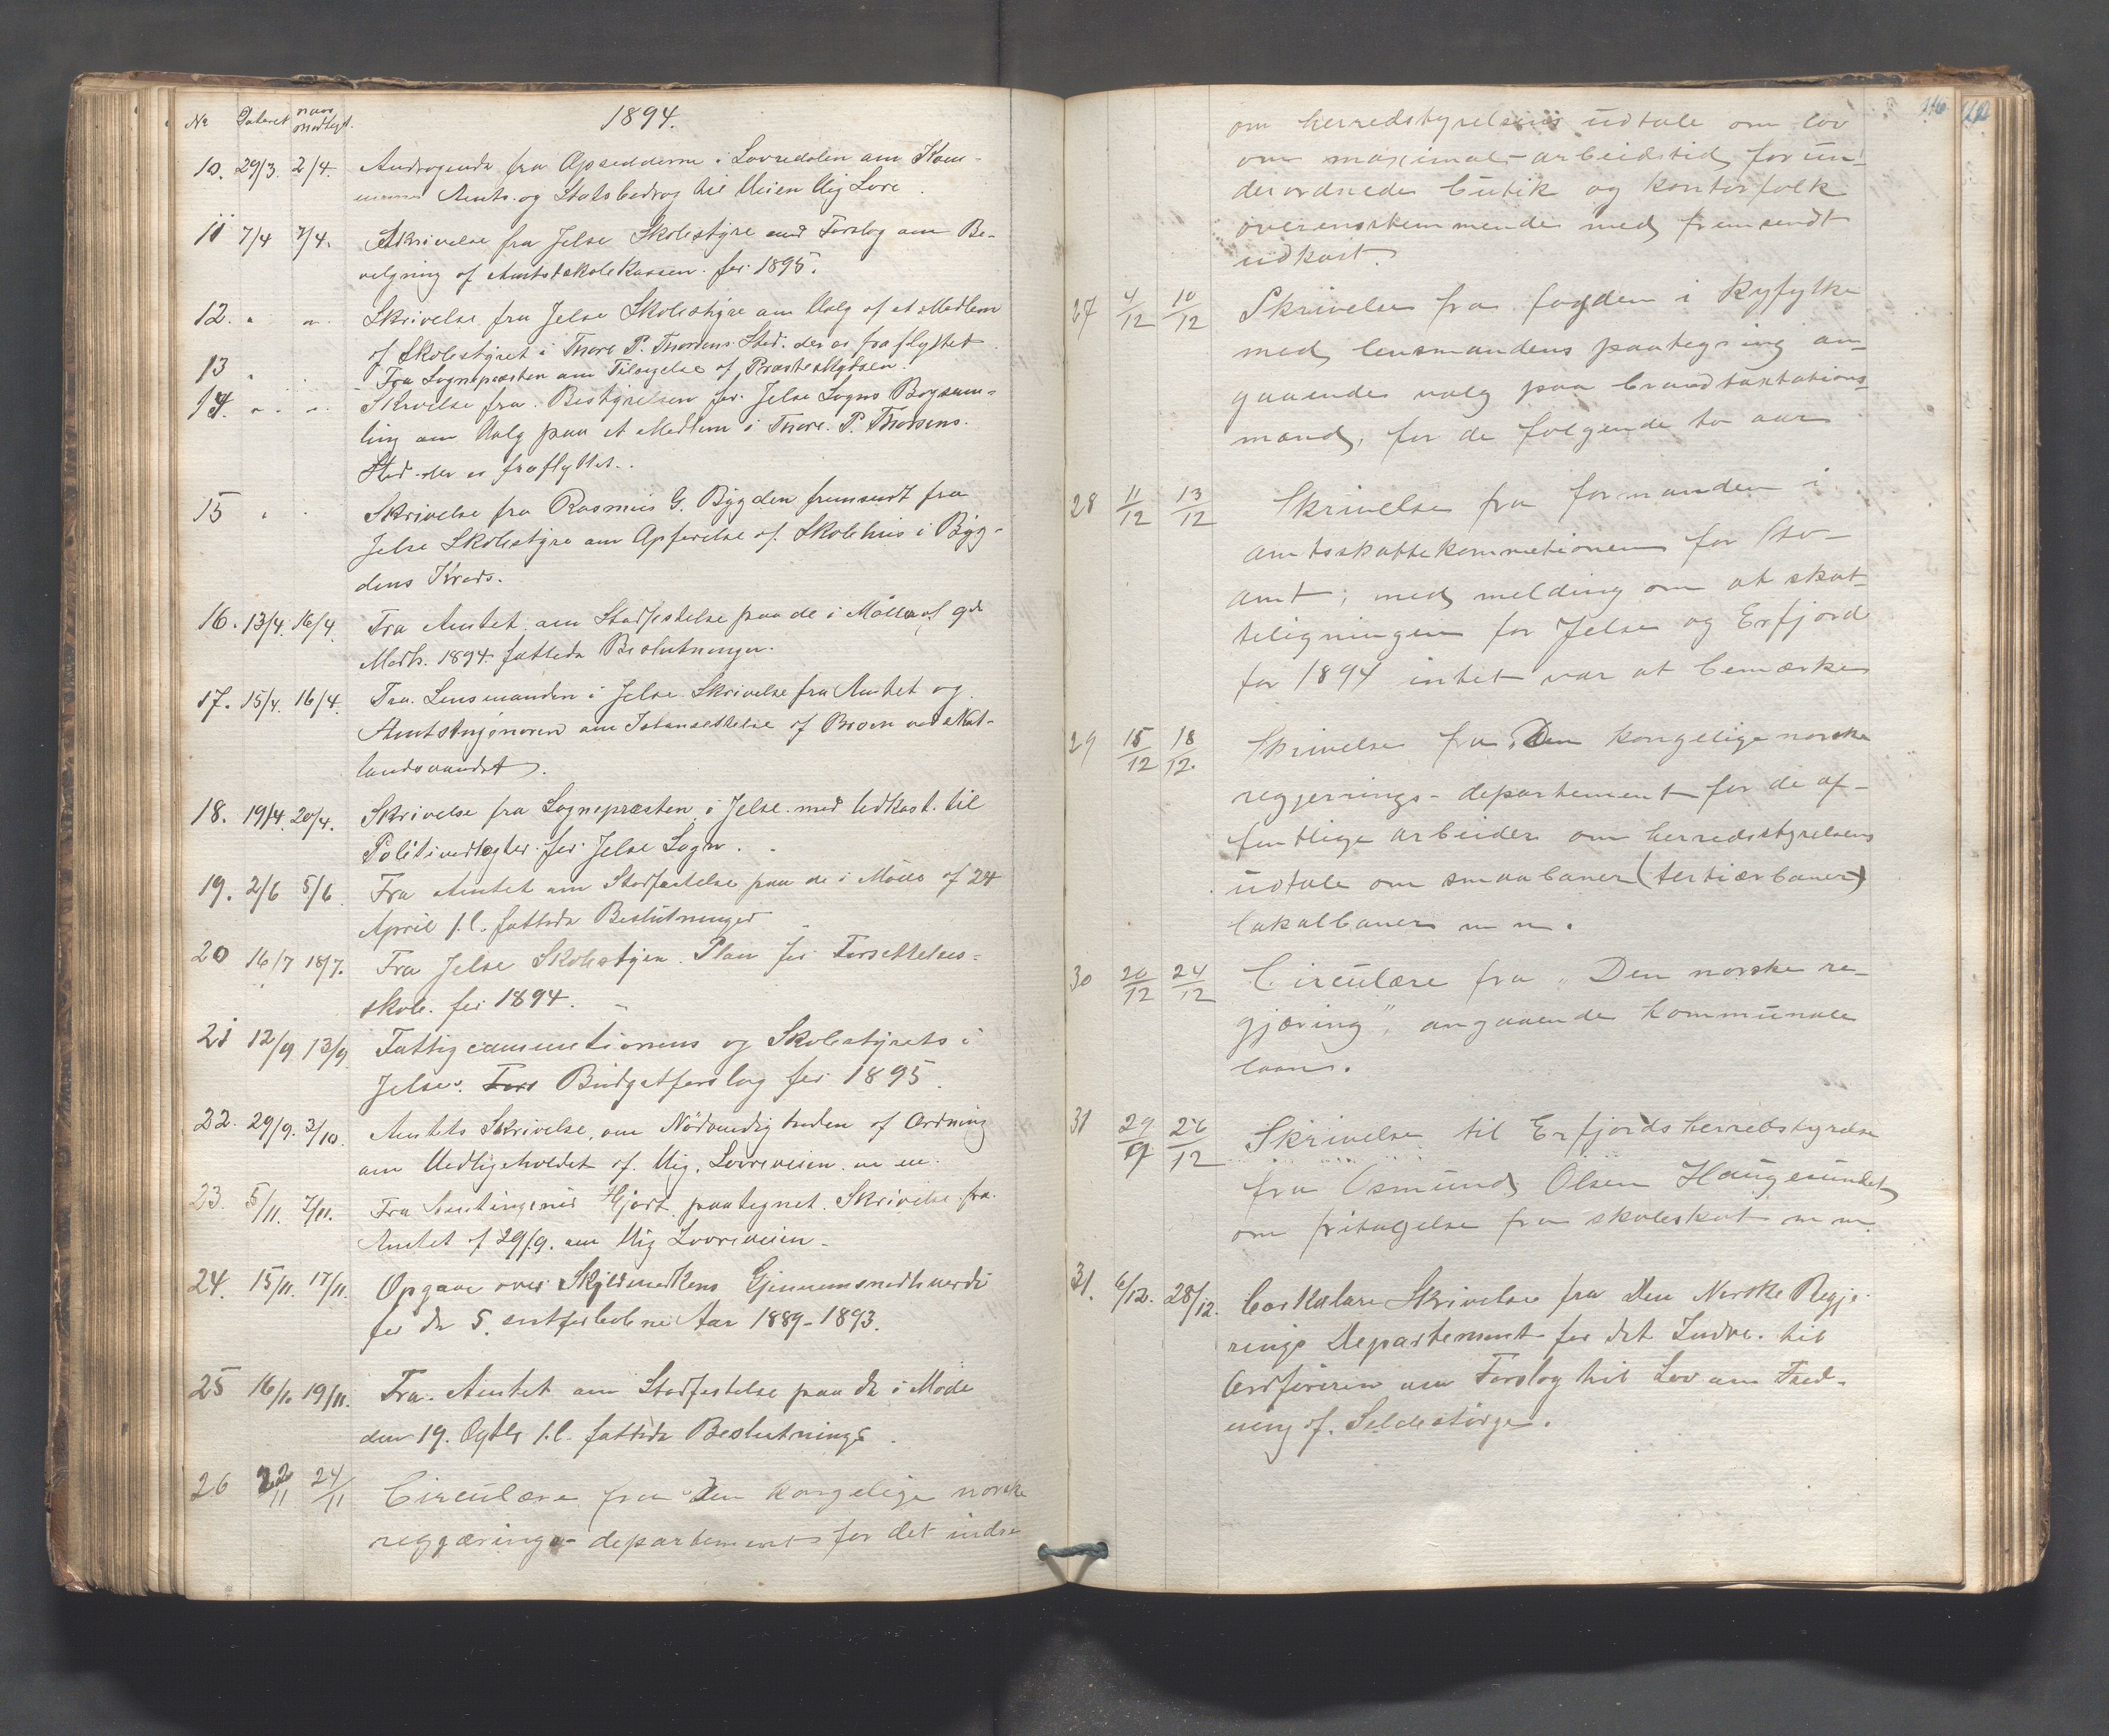 1894.
No Dateret naar modtagt.
10. 29/3. 2/4. Andragende fra Opsidderne i Lovredalen om Kom-
munes Amts- og Statsbedrag til Veien Vig Lovre.
11 7/4 7/4. Skrivelse fra Jelse Skolestyre med Forslag om Be-
vilgning af Amtsskolekassen for 1895.
12. " " Skrivelse fra Jelse Skolestyre om Valg af et Medlem
af Skolestyret i Thore P. Thorsens Sted. der er fraflyttet
13 " Fra Sognepræsten om Tilsigelse af Præsteskydsen.
14. " " Skrivelse fra Bestyrelsen for Jelse Sogns Bogsam-
ling om Valg paa et Medlem i Thore P. Thorsens
Sted der er fraflyttet.
15 " Skrivelse fra Rasmus G. Bygden fremsendt fra
Jelse Skolestyre om Opførelse af Skolehus i Byg-
dens Kreds.
16. 13/4. 16/4. Fra Amtet om Stadfestelse paa de i Møde af 9de
Marts. 1894 fattede Beslutninger.
17. 15/4. 16/4. Fra Lensmanden i Jelse Skrivelse fra Amtet og
Amtsingeniøren om Istansettelse af Broen ved
landsvandet.
18. 19/4. 20/4. Skrivelse fra Sognepræsten i Jelse med Udkast til
Politivedtægter for Jelse Sogn.
19. 2/6 5/6. Fra Amtet om Stadfestelse paa de i Møde af 24
April f.l. fattede Beslutninger
20 16/7 18/7. Fra Jelse Skolestyre Plan for Forsettelses-
skole for 1894.
21 12/9 13/9 Fattigcommitionens og Skolestyrets i
Jelse. Fors Budgetforslag for 1895.
22. 29/9. 3/10. Amtets Skrivelse, om Nödvendigheden af Ordning
om Vedligeholdet af Vig, Lovreveien m m.
23. 5/11. 7/11. Fra Amtingeniør Hjort paategnet Skrivelse fra
Amtet af 29/9. om Vig Lovreveien -
24. 15/11. 17/11. Opgave over Skyldmarkens Gjennemsnedtsverdi
for de 5. sidstforløbne Aar 1889-1893.
25 16/11. 19/11. Fra Amtet om Stadfestelse paa de i Møde
den 19. f.l. fattede Beslutninge.
26 22/11 24/11 Circulære fra Den kongelige norske
reggærings- departement for det indre
om herredstyrelsens udtale om lov
om maximal-arbeidstid for un-
derordnede butik og kontorfolk
overensstemmende med fremsendt
udkast.
27 4/12 10/12 Skrivelse fra fogden i Ryfylke
med lensmandens paategning an-
gaaende valg paa brandtaxtations-
mænd, for de følgende to aar
28 11/12 13/12 Skrivelse fra formanden i
amtsskattekommetionen for Stv-
amt; med melding om at skat-
teligningen for Jelse og Erfjord
for 1894 intet var at bemærke
29 15/12 18/12. Skrivelse fra Den kongelige norske
reggjerrings- departement for de of-
fentlige arbeider om herredsstyrelsens
udtale om smaabaner (tertiærbaner)
lokalbaner m m.
30 20/12 24/12 Circulære fra "Den norske re-
gjæring", angaaende kommunale
laan.
31 29/9 26/12 Skrivelse til Erfjords herredstyrelse
fra Osmund Olsen Haugesundet
om fritagelse fra skoleskat m m.
31. 6/12. 28/12. Cerkulære Skrivelse fra Den Norske Regje-
rings Departement for det Indre. til
Ordføreren om Forslag til Lov om Fred-
ning af Seldestørje.